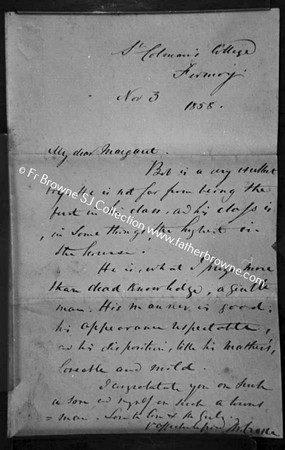 St Colman's College
Fermoy
Nov 3
1858.
My dear Margaret.
Bob is a very excellent
boy. He is not far from being the
best in his class. and his class is
, in some things, the highest in
the house.
He is, what I prize more
than dead knowledge, a gentle
man. His manner is good;
his appearance respectable,
and his disposition, like his mother's,
loveable and mild.
I congratulate you on such
a son and myself on such a
= man.
© Fr Browne SJ Collection www.fatherbrowne.com